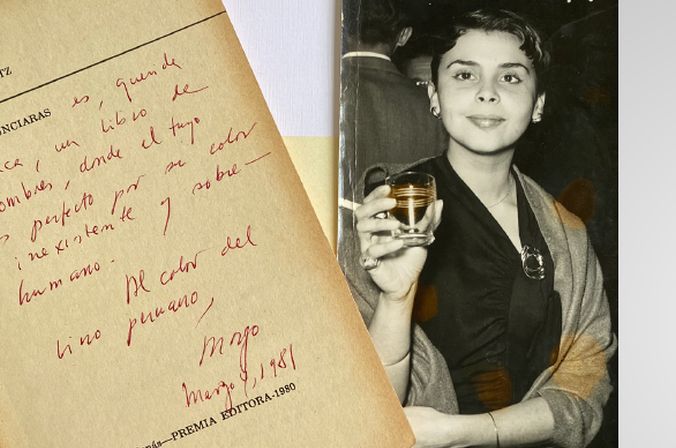 TZ
NCIARAS es, querida
ca, un libro de
ombres, donde el tuyo
s perfecto por su color
inexistente y sobre—
humano.
Al color del
lino peruano,
Marzo , 1981
PREMIA EDITORA-1980